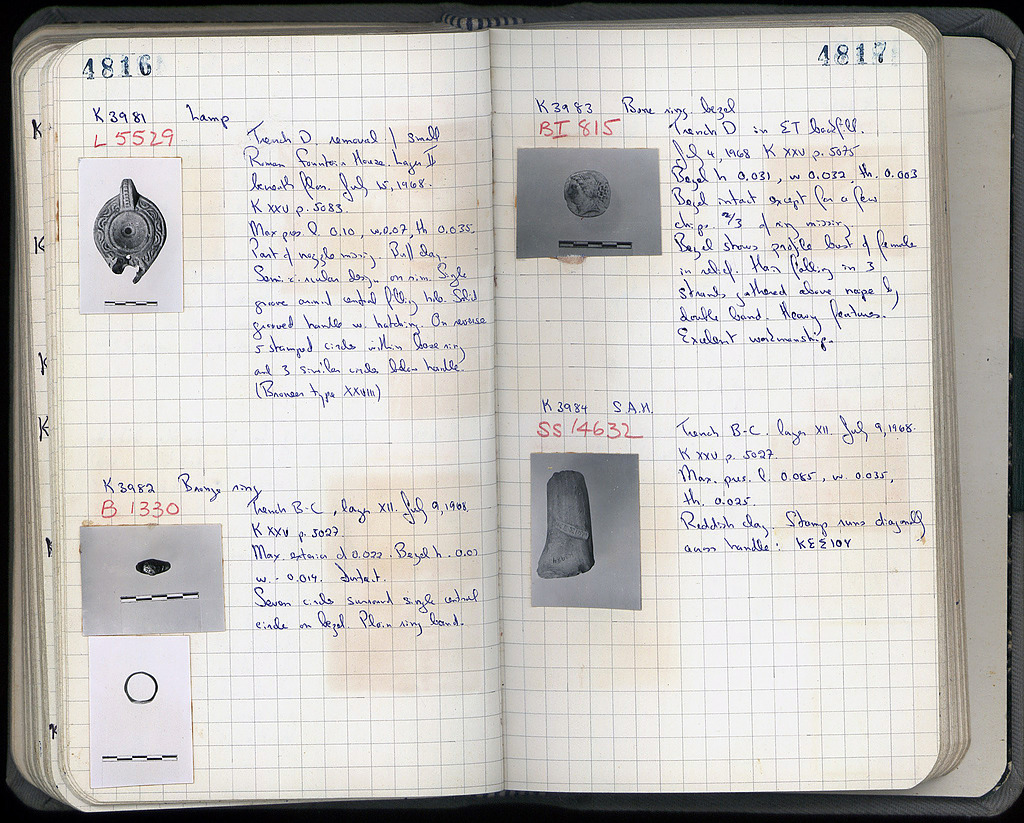 4816
K 3981 Lamp
L 5529
Trench D removal / small
Roman Fountain House Layer II
beneath floor. July 15, 1968.
K XXV p. 5083.
Max pres. l. 0.10, w. 0.07, th 0.035.
Part of nozzle missing. Buff clay.
Semi-circular design on rim. Single
groove around central filling hole. Solid
grooved handle w. hatching. On reverse
5 stamped circles within base ring
and 3 similar circles below handle.
(Broneer type XXVIII)
K 3982 Bronze ring
B 1330
Trench B-C, layer XII. July 9, 1968.
K XXV p. 5027.
Max. exterior d 0.022. Bezel h. 0.01
w. - 0.014. Intact.
Seven circles surround single central
circle on bezel. Plain ring band.
4817
K 3983 Bone ring bezel
BI 815
Trench D in ET backfill.
July 4, 1968 K XXV p. 5075
Bezel h 0.031, w 0.032, th. 0.003
Bezel intact except for a few
chips. 2/3 of ring missing
Bezel shows profile bust of female
in relief. Hair falling in 3
strands gathered above nape by
double band. Heavy features.
Exculent workmanship.
K 3984 S.A.H.
SS 14632
Trench B-C. layer XII. July 9, 1968.
K XXV p. 5027.
Max. pres. l. 0.085, w. 0.035,
th. 0.025.
Reddish clay. Stamp runs diagonally
across handle: ΚΕΣΤΟΥ